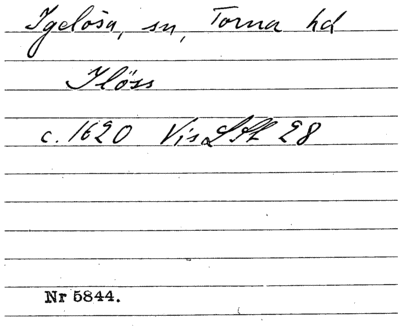 Igelösa, sn, Torna hd
Ilöss
c. 1620 Vis LSt 28
Nr 5844.